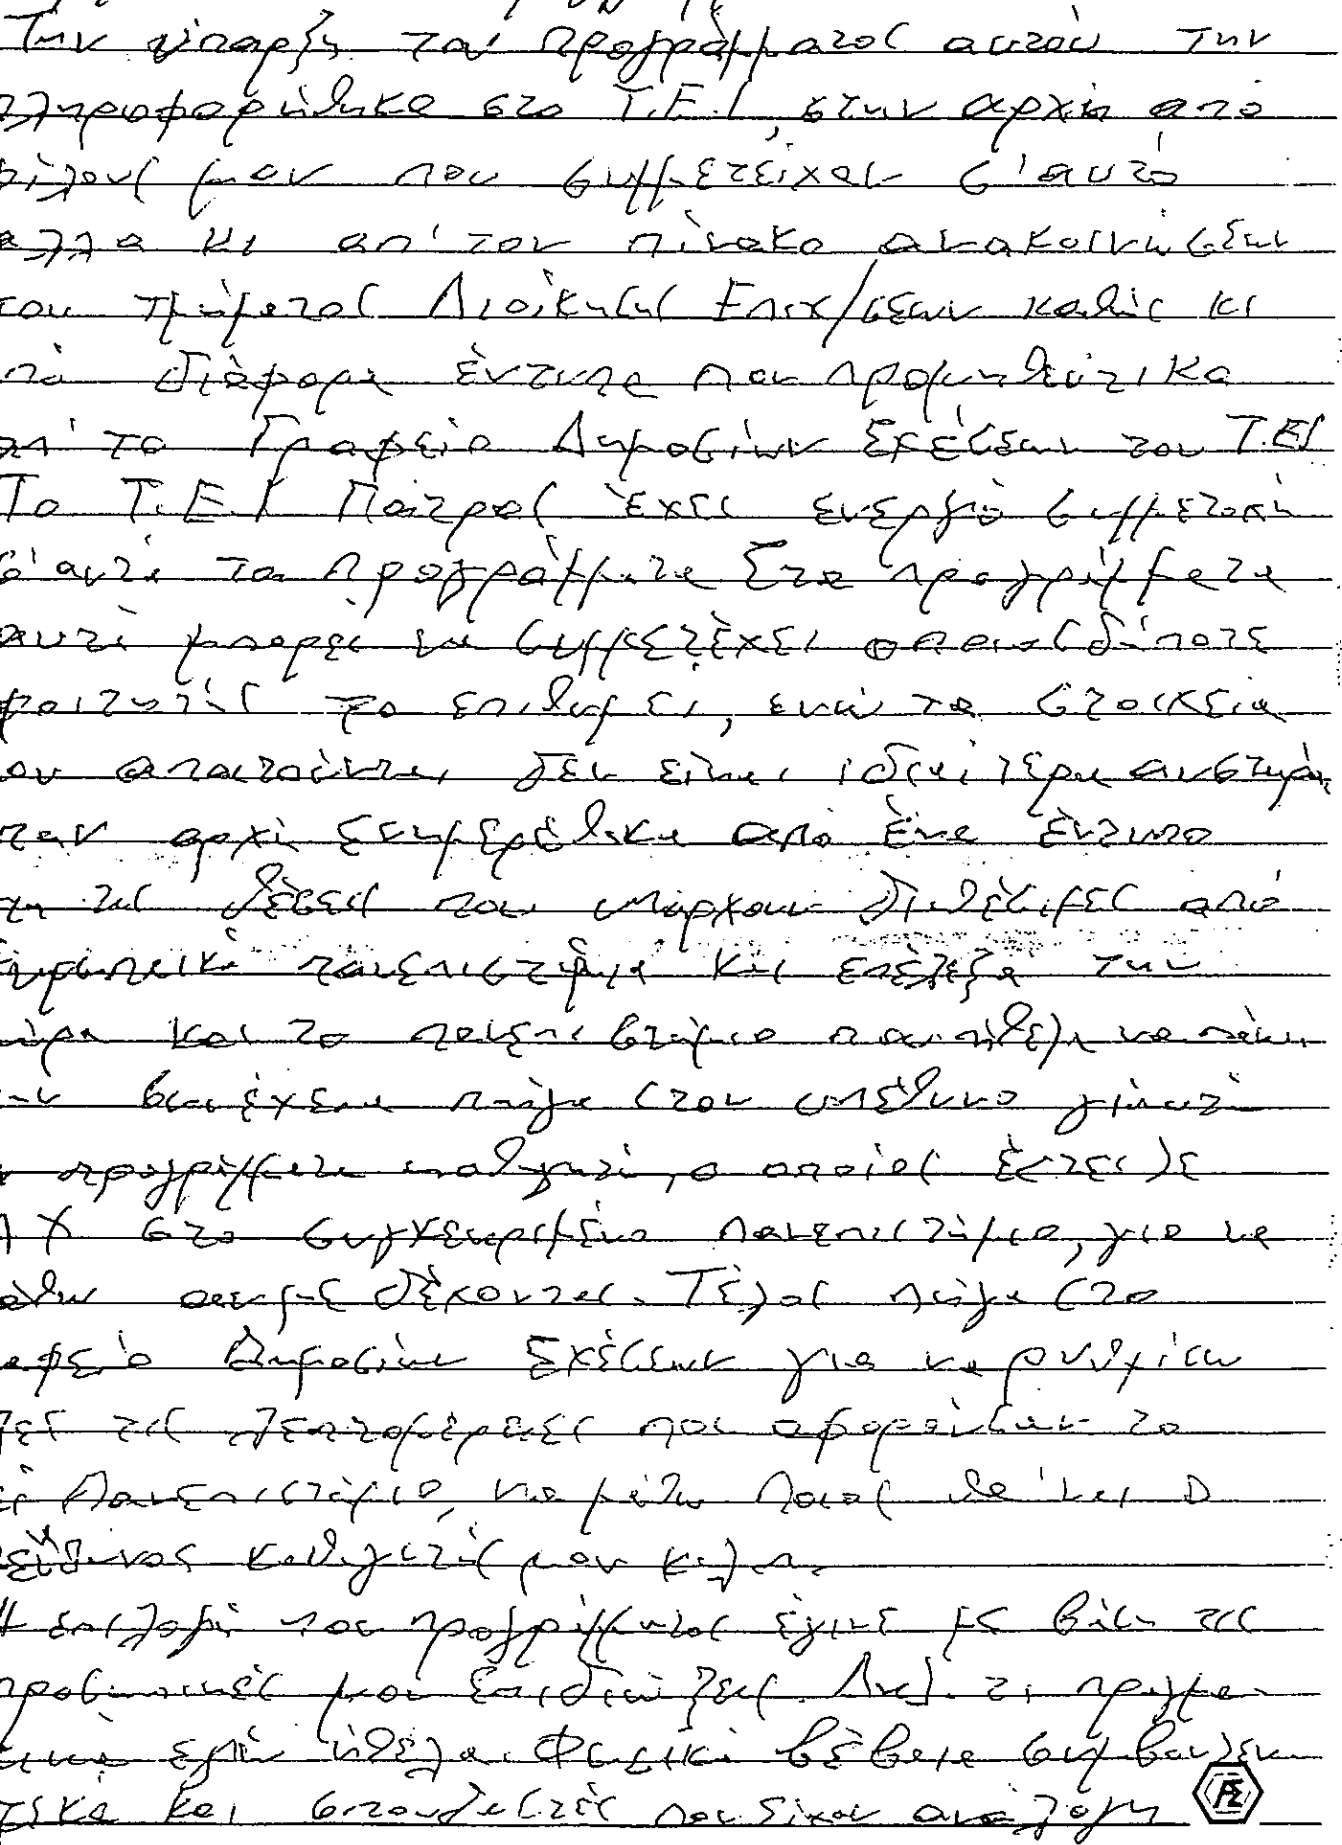 Την ύπαρξη του προγράμματος αυτού την
πληροφορήθηκα στο Τ.Ε.Ι, στην αρχή από
φίλους μου που συμμετείχαν σ'αυτό
αλλα κι απ'τον πίνακα ανακοινώσεων
του τμήματος Διοίκησης Επιχ/σεων καθώς κι
πό διάφορα έντυπα που προμηθεύτικα
απ'το Γραφείο Δημοσίων Σχέσεων του Τ.ΕΙ
Το Τ.Ε.Ι Πάτρας έχει ενεργιό συμμετοχή
σ'αυτά τα προγράμματα Στα προγράμματα
αυτά μπορεί να συμμετέχει οποιοσδήποτε
φοιτητής το επιθυμεί, ενώ τα στοιχεία
ου απαιτούνται δεν είναι ιδιαίτερα αυστηρά
την αρχή ενημερώθηκα από ένα έντυπο
για τις θέσεις που υπάρχουν διαθέσιμες από
Ευρωπαικά πανεπιστήμια και επέλεξα την
ώρα και το πανεπιστήμιο που ήθελα να πάω
συνέχεια πήγα στον υπέθυνο γιαυτά
προγράμματα καθηγητή, ο οποίος έστειλε
στο συγκεκριμένο πανεπιστήμιο, για να
άθω αν με δέχονται. Τέλος πήγα στο
αφείο Δημοσίων Σχέσεων για να ρυθμίσω
λες τις λεπτομέρειες που αφορούσαν το
Πανεπιστήμιο, να μάθω ποιος θα'ναι ο
υπεύθυνος καθηγητής μου κ.λ.π.
Η επιλογή του προγράμματος έγινε με βάση τις
προσωπικές μου επιδιώξεις. Δηλ. τι πραγμα-
τικά εγώ ήθελα. Φυσικά βέβαια συμβουλεύ
τικα και σπουδαστές που είχαν ανάλογη